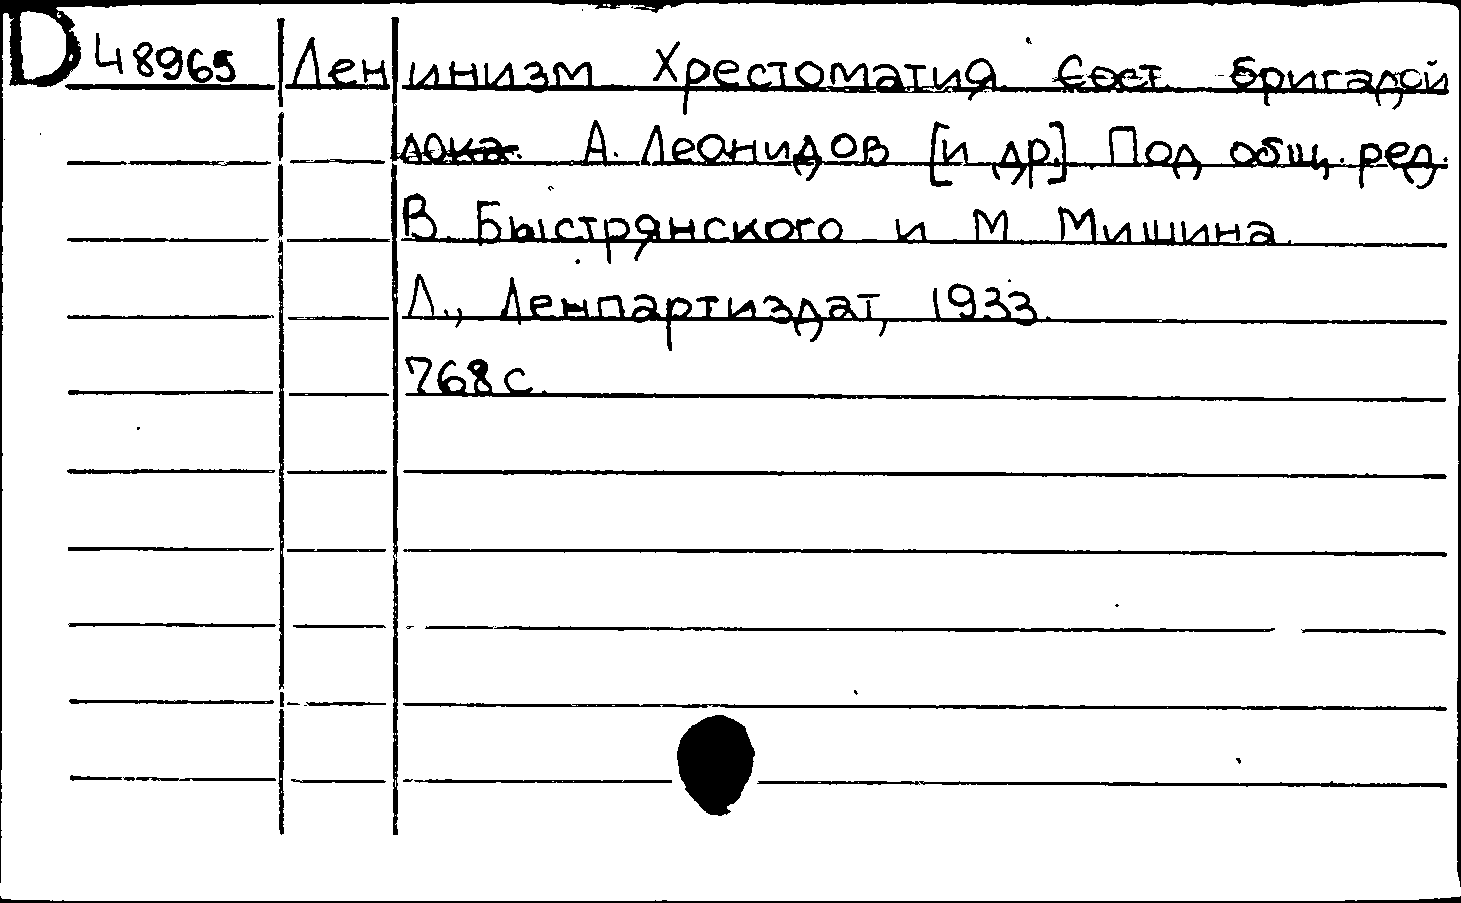 D 48965 Ленинизм Хрестоматия Сост. бригадой
лока. А. Леонидов [и др.] Под общ. ред.
В. Быстрянского и М. Мишина.
Л., Ленпартиздат, 1933.
768 с.